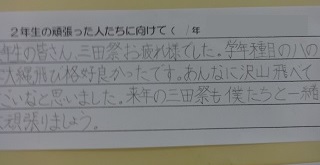 ２年生の頑張った人たちに向けて（　／年
年生の皆さん、三田祭お疲れ様でした。学年種目の八の
大縄飛び格好良かったです。あんなに沢山飛べて
ごいなと思いました。来年の三田祭も僕たちと一緒
頑張りましょう。